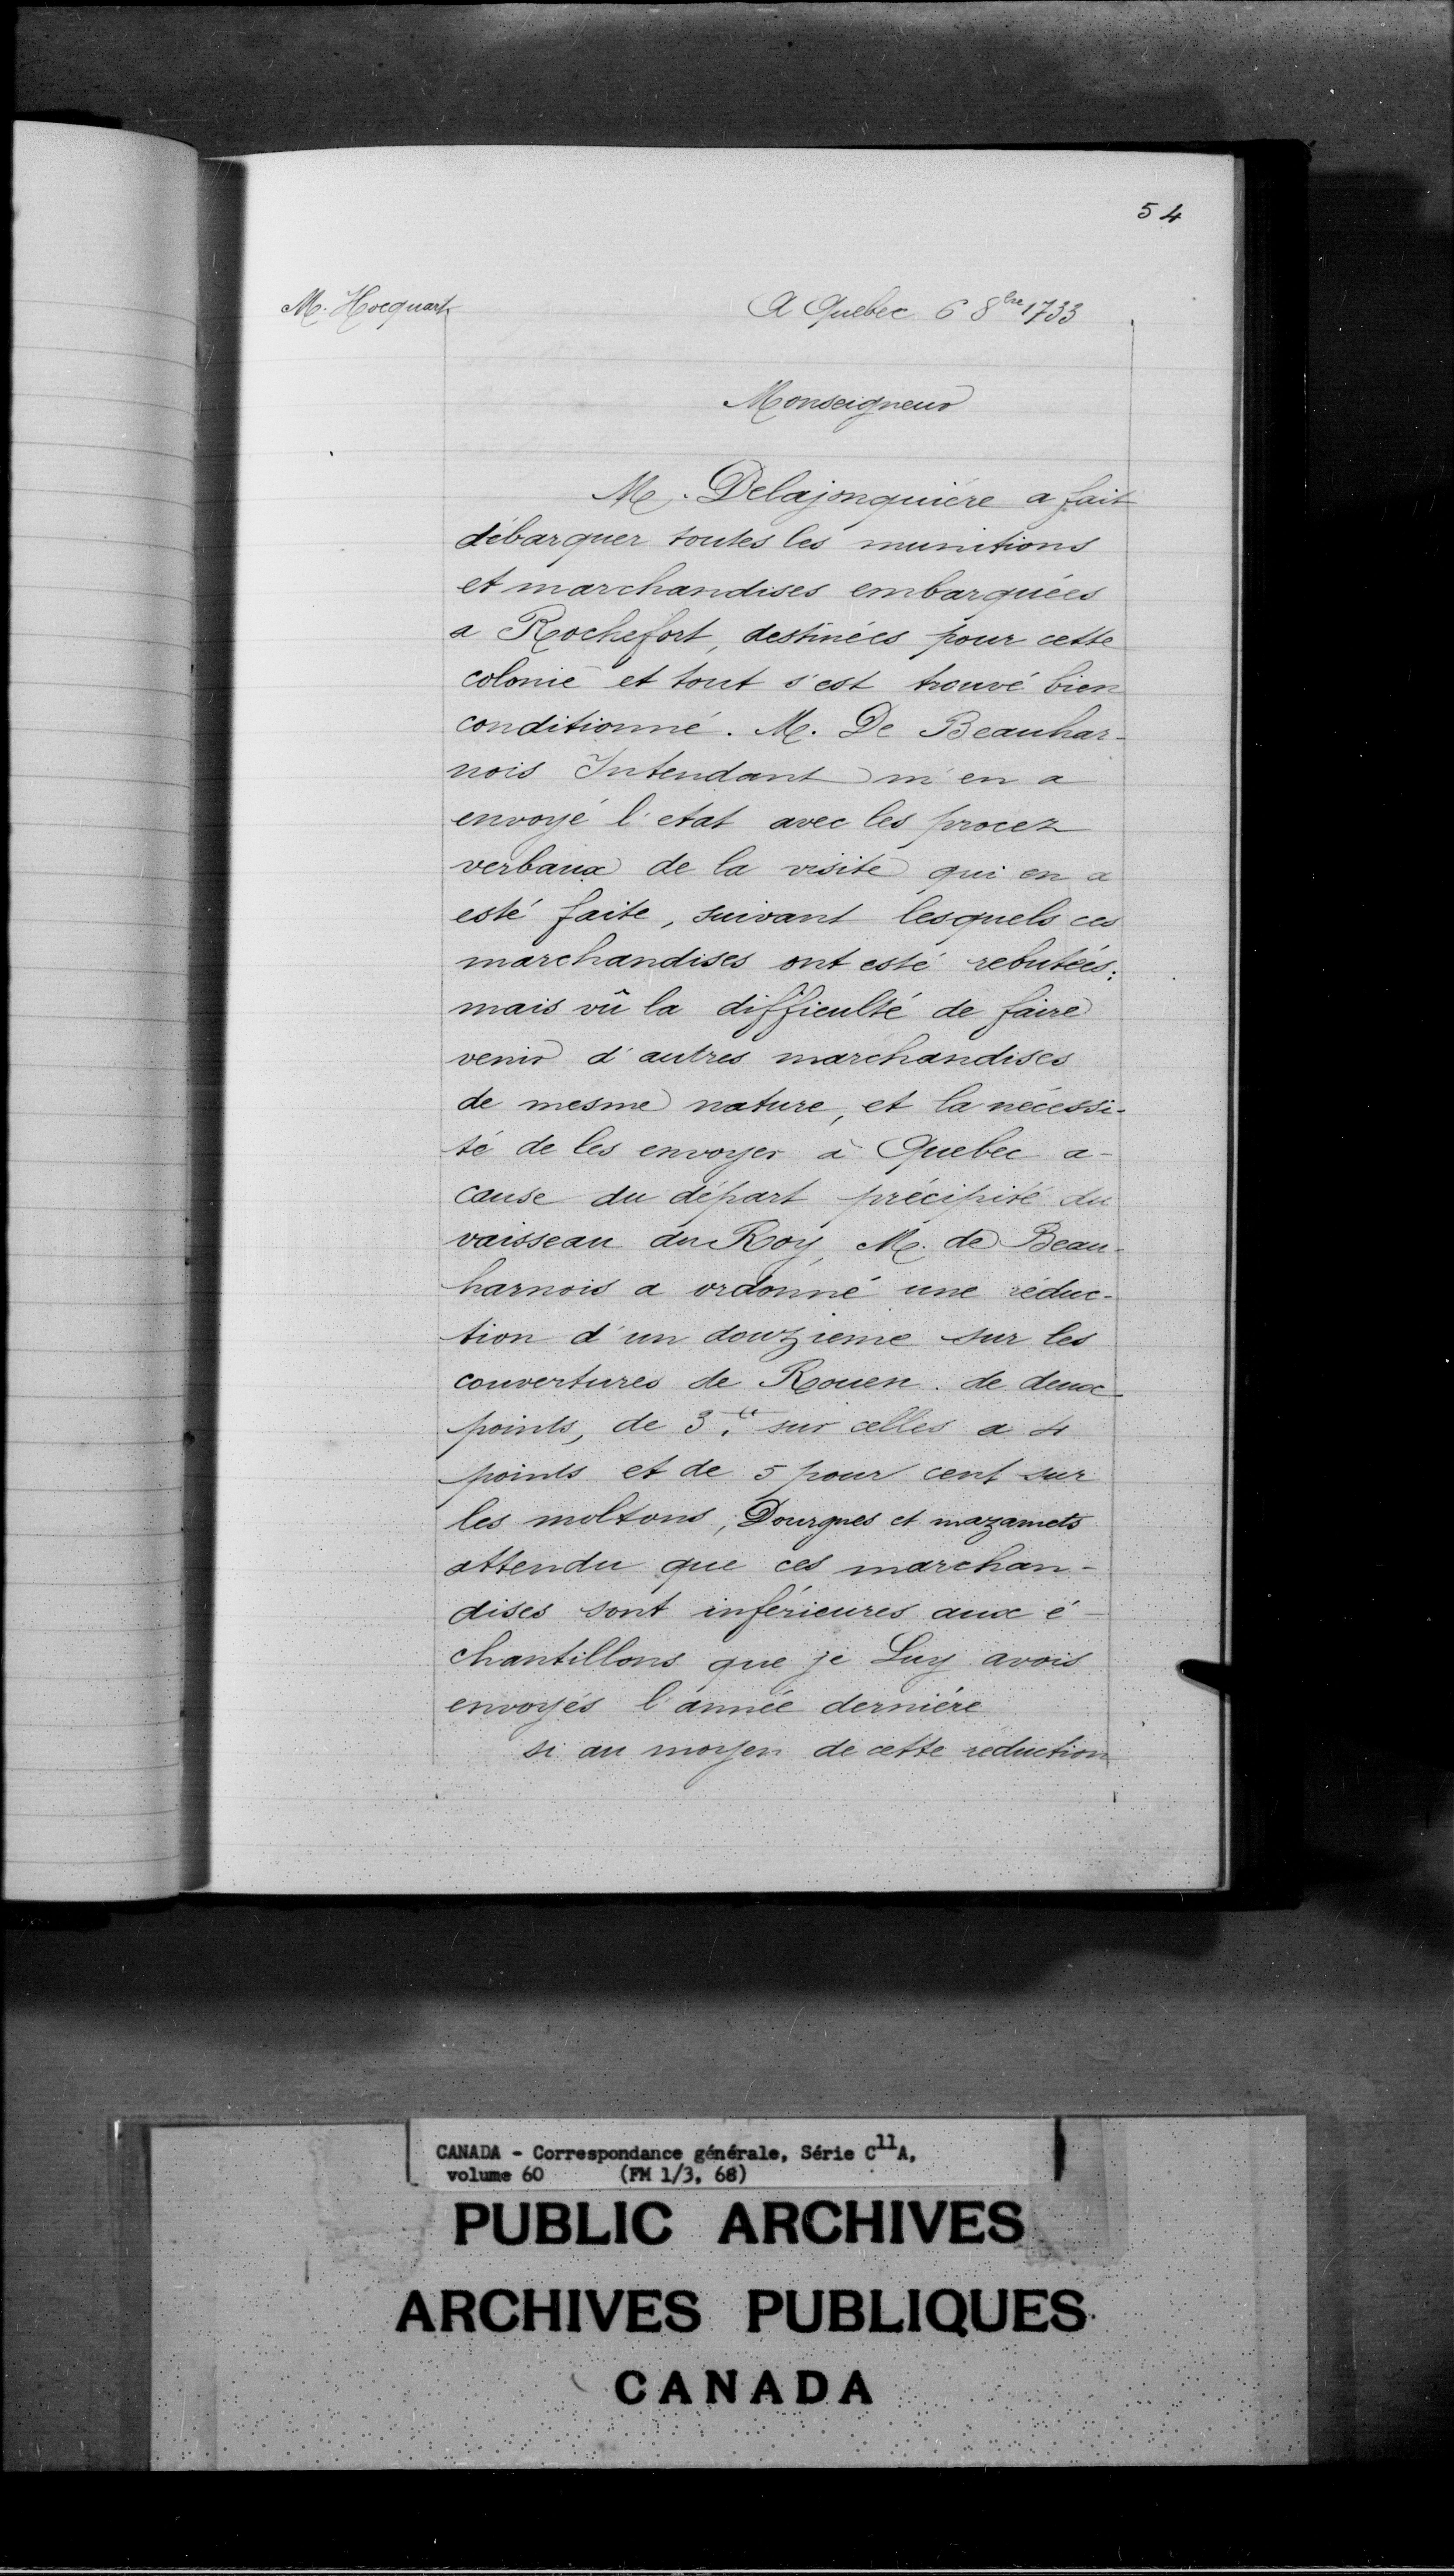 54
M. Hocquart
A Quebec 6 8bre 1733
Monseigneur
M. Delajonquiére a fait
débarquer toutes les munitions
et marchandises embarquées
a Rochefort, destinées pour cette
colonie et tout s'est trouvé bien
conditionné. M. De Beauhar-
nois Intendant m'en a
envoyé l'etat avec les procez
verbaux de la visite qui en a
esté faite, suivant lesquels ces
marchandises ont esté rebutées;
mais vû la difficulté de faire
venir d'autres marchandises
de mesme nature, et la nécessi-
té de les envoyer à Quebec a-
cause du départ précipité du
vaisseau du Roy, M. de Beau-
harnois a ordonné une réduc-
tion d'un douzieme sur les
couvertures de Rouen de deux
points, de 3.tt sur celles a 4
points et de 5 pour cent sur
les moltons, Dourgnes et mazamets
attendu que ces marchan-
dises sont inférieures aux é-
chantillons que je Luy avois
envoyés l'année derniére
si au moyen de cette reduction
CANADA - Correspondance générale, Série C11A,
volume 60 (FM 1/3, 68)
PUBLIC ARCHIVES
ARCHIVES PUBLIQUES
CANADA